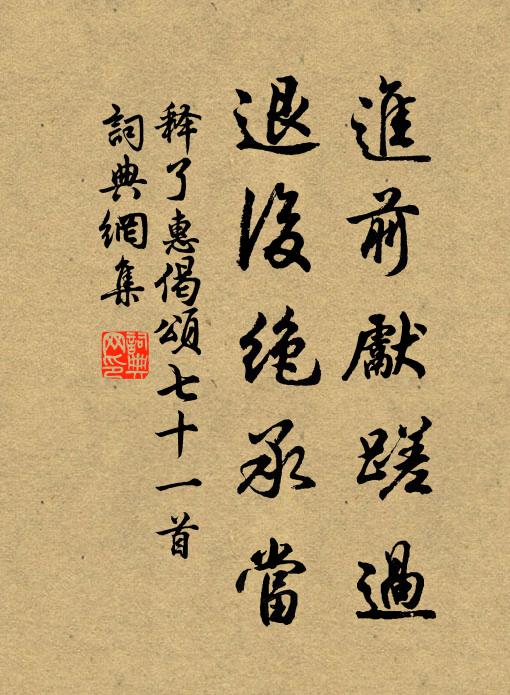 進前獻蹉過
退後絶承當
释了惠偈頌七十一首
詞典網集
詞典网印